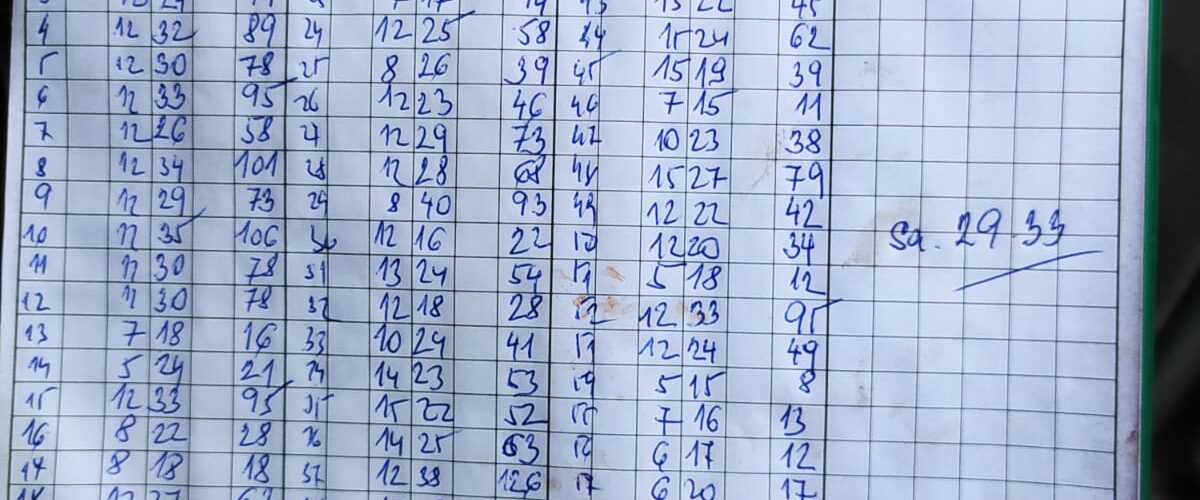 4 12 32 89 24 12 25 58 44 15 24 62
5 12 30 78 25 8 26 39 45 15 19 39
6 12 33 95 26 12 23 46 46 7 15 11
7 12 26 58 27 12 29 73 47 10 23 38
8 12 34 101 28 12 28 68 48 15 27 79
9 12 29 73 29 8 40 93 49 12 22 42
10 12 35 106 30 12 16 22 50 12 20 34 Sa. 29.33
11 12 30 78 31 13 24 54 51 5 18 12
12 12 30 78 32 12 18 28 52 12 33 95
13 7 18 16 33 10 24 41 53 12 24 49
14 5 24 21 34 14 23 53 54 5 15 8
15 12 33 95 35 15 22 52 55 7 16 13
16 8 22 28 36 14 25 63 56 6 17 12
17 8 18 18 37 12 38 126 57 6 20 17